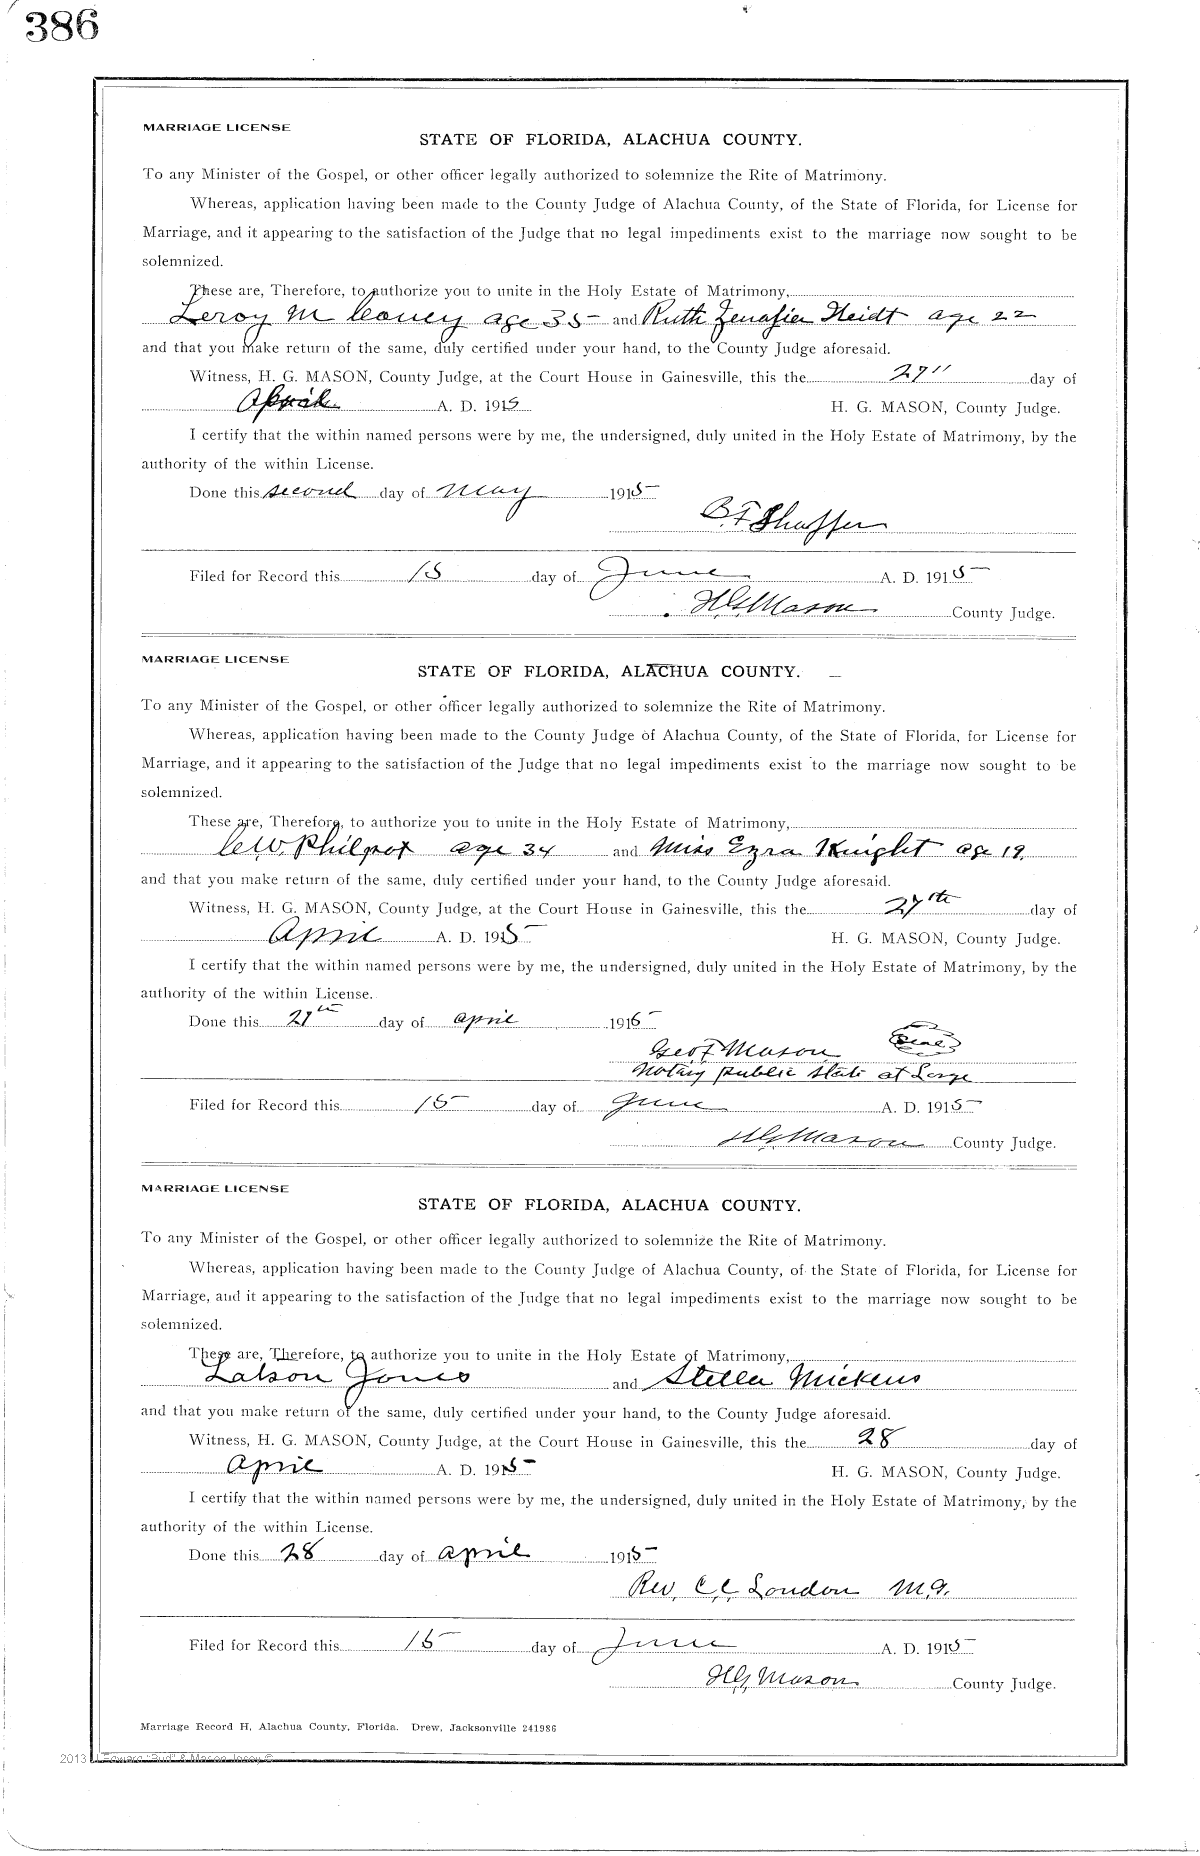 386
MARRIAGE LICENSE
STATE OF FLORIDA, ALACHUA COUNTY.
To any Minister of the Gospel, or other officer legally authorized to solemnize the Rite of Matrimony.
Whereas, application having been made to the County Judge of Alachua County, of the State of Florida, for License for
Marriage, and it appearing to the satisfaction of the Judge that no legal impediments exist to the marriage now sought to be
solemnized.
These are, Therefore, to authorize you to unite in the Holy Estate of Matrimony,
Leroy M age 35 and Ruth Heidt age 22
and that you make return of the same, duly certified under your hand, to the County Judge aforesaid.
Witness, H. G. MASON, County Judge, at the Court House in Gainesville, this the 27" day of
April A. D. 1915 H. G. MASON, County Judge.
I certify that the within named persons were by me, the undersigned, duly united in the Holy Estate of Matrimony, by the
authority of the within License.
Done this second day of May 1915
B. F. Shaffer
Filed for Record this 15 day of June A. D. 1915
H.G. Mason County Judge.
MARRIAGE LICENSE
STATE OF FLORIDA, ALACHUA COUNTY.
To any Minister of the Gospel, or other officer legally authorized to solemnize the Rite of Matrimony.
Whereas, application having been made to the County Judge of Alachua County, of the State of Florida, for License for
Marriage, and it appearing to the satisfaction of the Judge that no legal impediments exist to the marriage now sought to be
solemnized.
These are, Therefore, to authorize you to unite in the Holy Estate of Matrimony,
C.W. Philpot age 34 and Miss Ezra Knight age 19.
and that you make return of the same, duly certified under your hand, to the County Judge aforesaid.
Witness, H. G. MASON, County Judge, at the Court House in Gainesville, this the 27th day of
April A. D. 1915 H. G. MASON, County Judge.
I certify that the within named persons were by me, the undersigned, duly united in the Holy Estate of Matrimony, by the
authority of the within License.
Done this 27th day of April 1915
Geo F Mason Seal
Notary public State at Large
Filed for Record this 15 day of June A. D. 1915
H.G. Mason County Judge.
MARRIAGE LICENSE
STATE OF FLORIDA, ALACHUA COUNTY.
To any Minister of the Gospel, or other officer legally authorized to solemnize the Rite of Matrimony.
Whereas, application having been made to the County Judge of Alachua County, of the State of Florida, for License for
Marriage, and it appearing to the satisfaction of the Judge that no legal impediments exist to the marriage now sought to be
solemnized.
These are, Therefore, to authorize you to unite in the Holy Estate of Matrimony,
Latson Jones and Stella Mickens
and that you make return of the same, duly certified under your hand, to the County Judge aforesaid.
Witness, H. G. MASON, County Judge, at the Court House in Gainesville, this the 28 day of
April A. D. 1915 H. G. MASON, County Judge.
I certify that the within named persons were by me, the undersigned, duly united in the Holy Estate of Matrimony, by the
authority of the within License.
Done this 28 day of April 1915
Rev, C.C. London M.G.
Filed for Record this 15 day of June A. D. 1915
H.G. Mason County Judge.
Marriage Record H, Alachua County, Florida. Drew, Jacksonville 241986
2013 J Edward "Bud" & Mason Josey ©